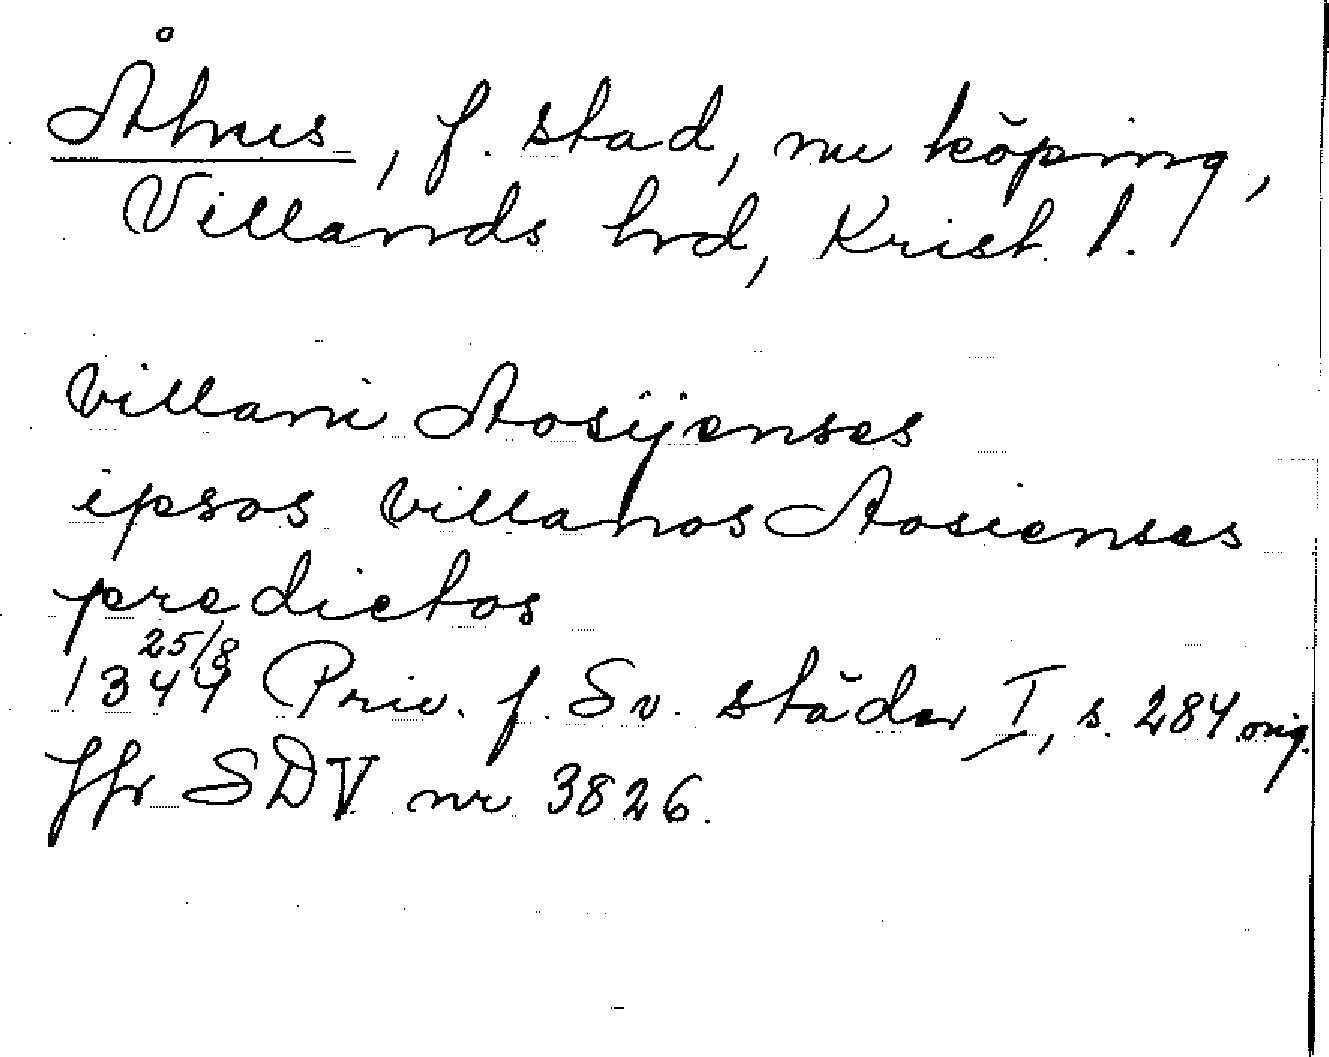 Åhus, f. stad, nu köping,
Villands hrd, Krist. l.
villani Aosÿenses
ipsos villanos Aosienses
predictos
25/8
1344 Priv. f. Sv. städer I, s. 284 orig.
Jfr SDV nr 3826.